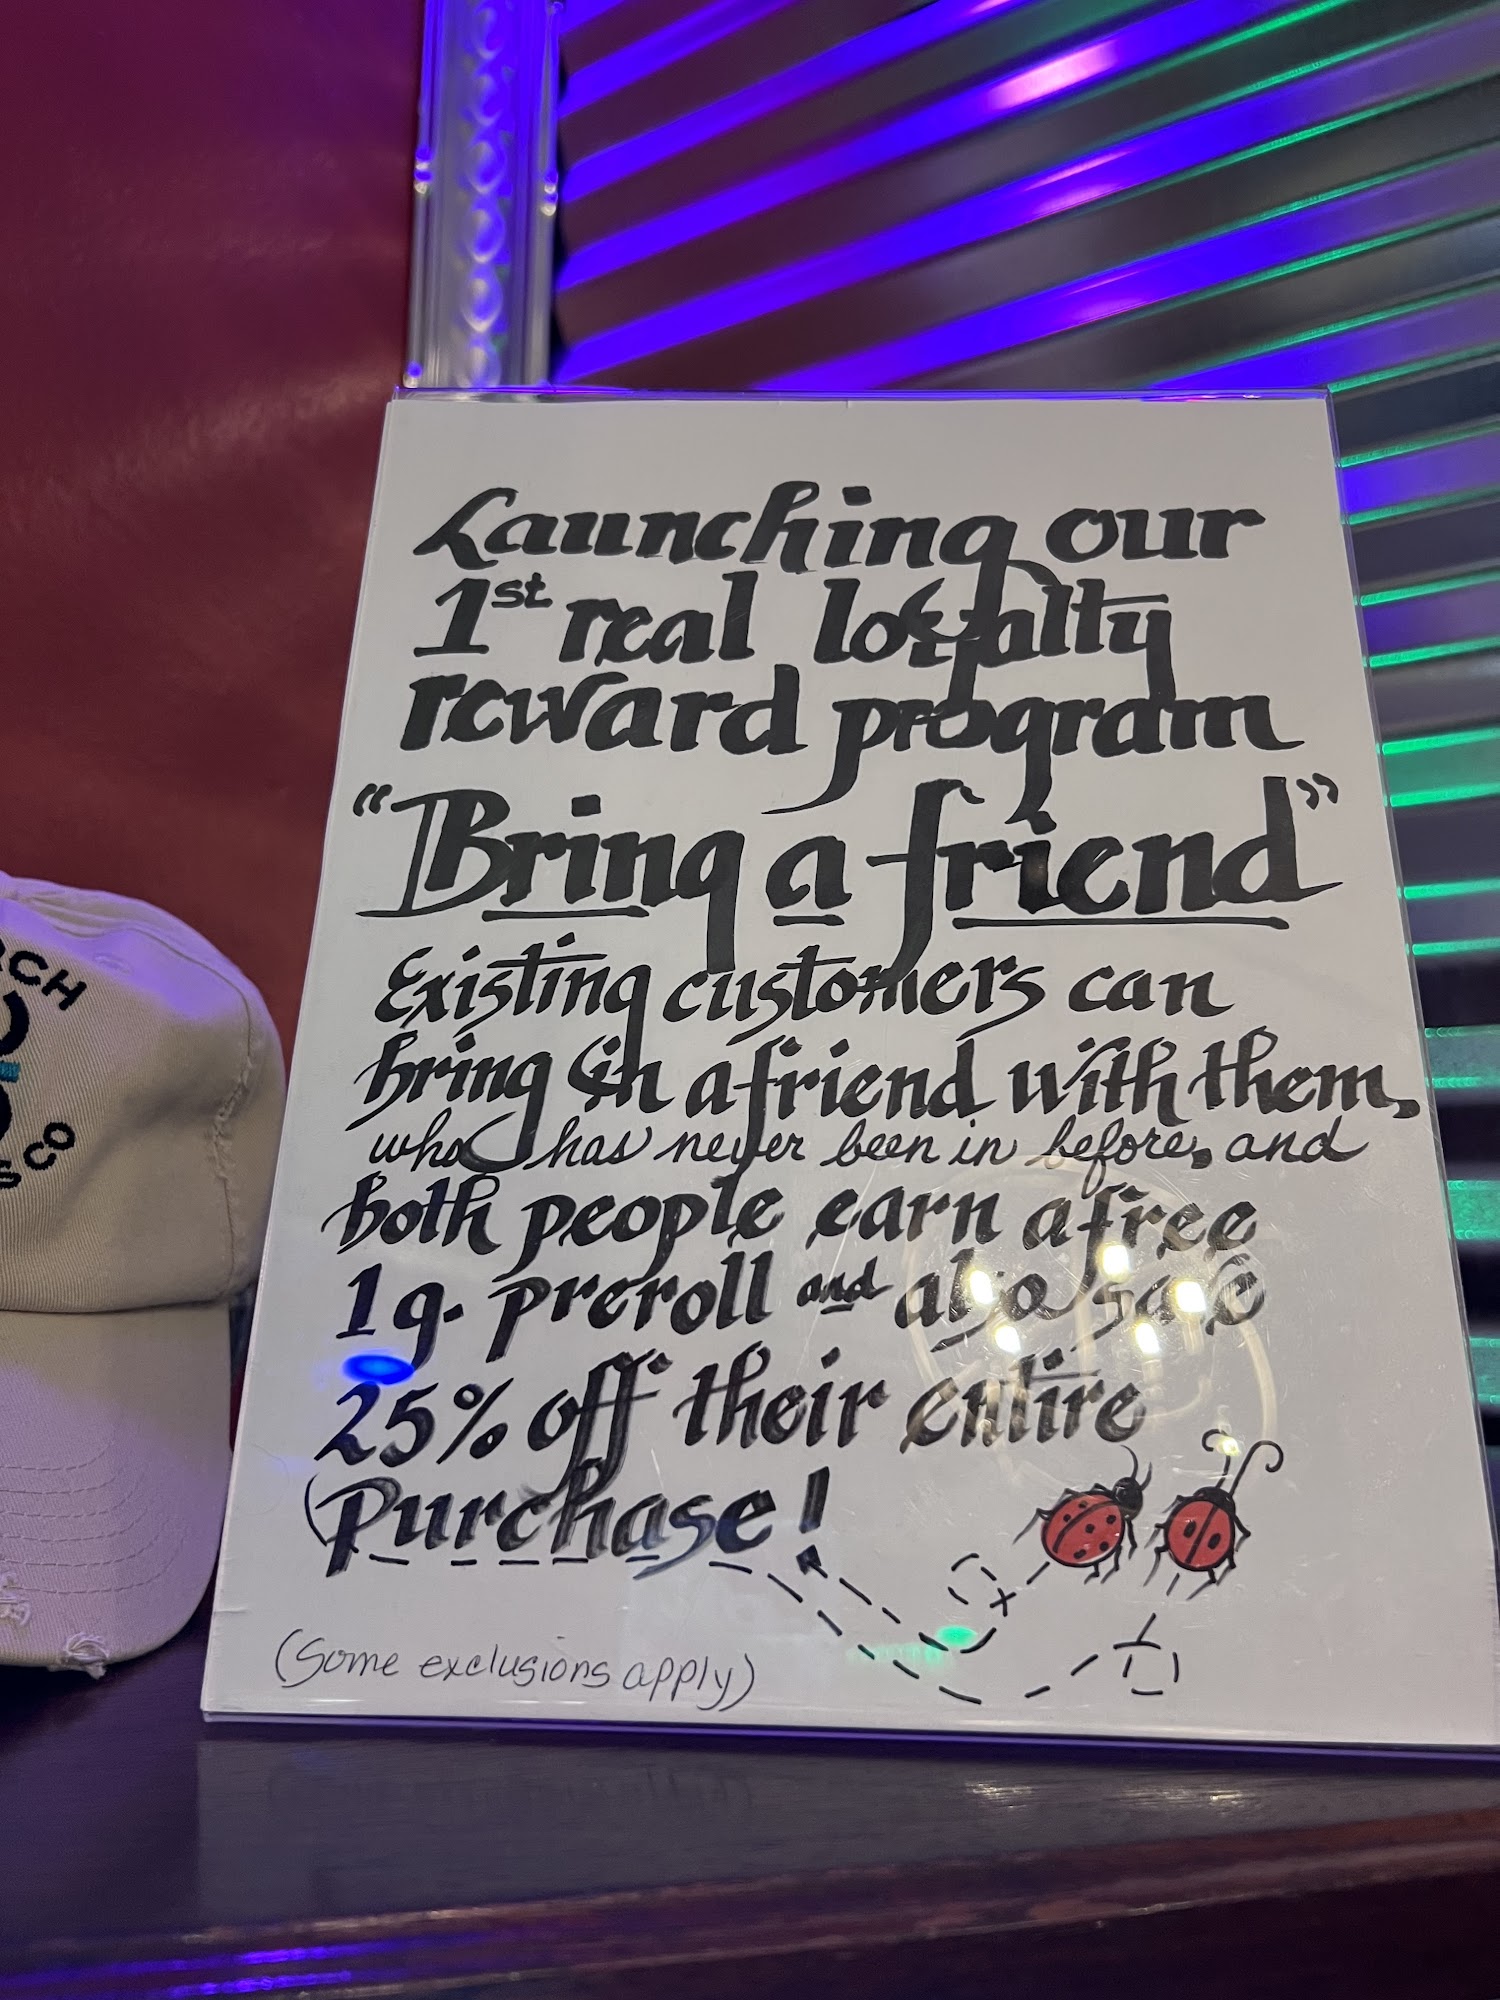 Launching our
1st real loyalty
reward program
"Bring a friend"
Existing customers can
bring in a friend with them,
who has never been in before, and
both people earn a free
1g. preroll and also save
25% off their entire
Purchase!
(Some exclusions apply)
CO